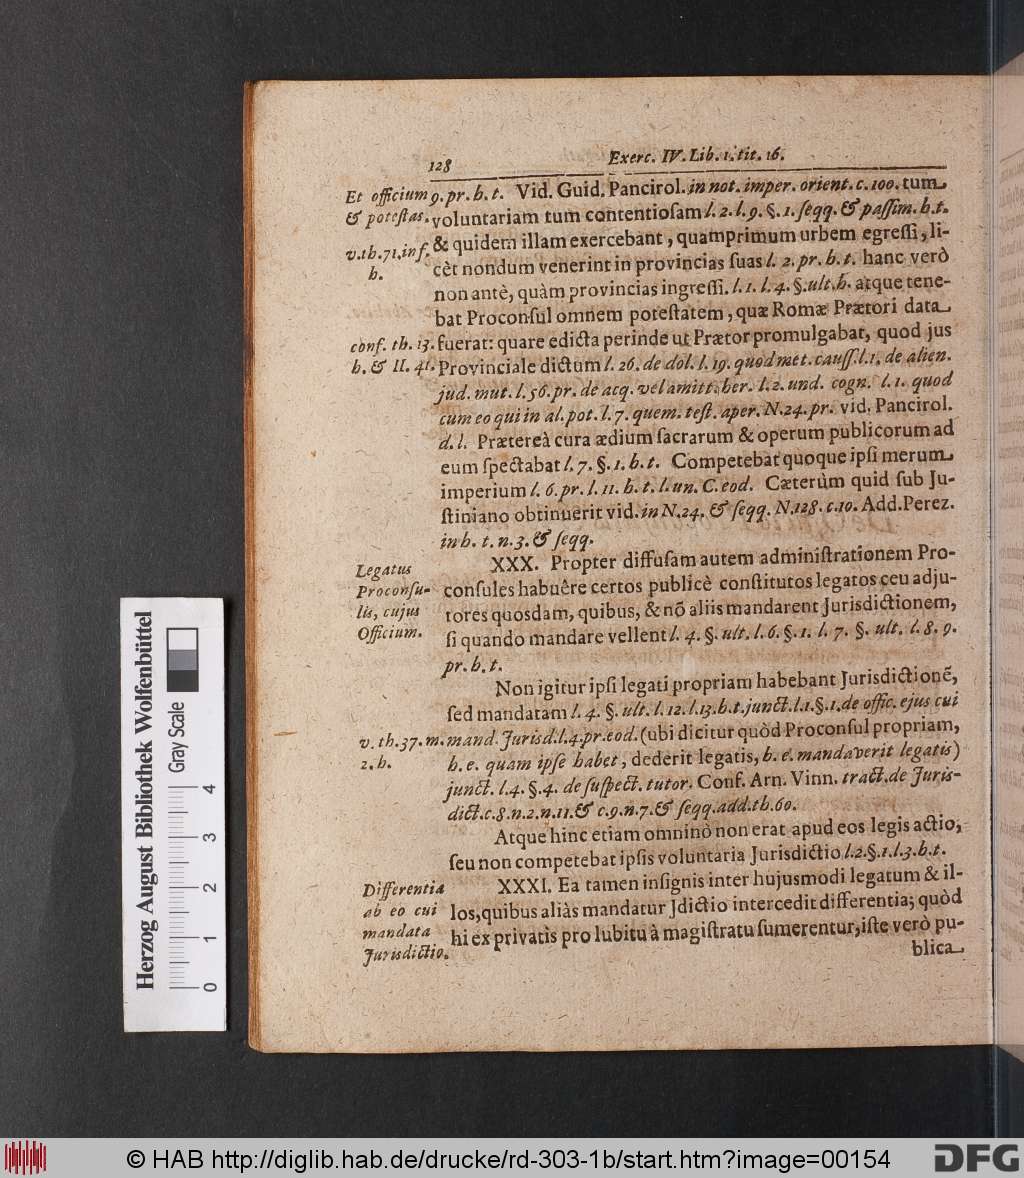 128 Exerc. IV. Lib. 1. tit. 16.
Et officium
& potestas.
9. pr. h. t. Vid. Guid. Pancirol. in not. imper. orient. c. 100. tum
voluntariam tum contentiosam l. 2. l. 9. §. 1. seqq. & passim. h. t.
v. th. 71. inf.
h.
& quidem illam exercebant, quamprimum urbem egressi, li-
cèt nondum venerint in provincias suas l. 2. pr. h. t. hanc verò
non antè, quàm provincias ingressi. l. 1. l. 4. §. ult. h. atque tene-
bat Proconsul omnem potestatem, quæ Romæ Prætori data
conf. th. 13.
h. & II. 41.
fuerat: quare edicta perinde ut Prætor promulgabat, quod jus
Provinciale dictum l. 26. de dol. l. 19. quod met. causs. l. 1. de alien.
jud. mut. l. 56. pr. de acq. vel amitt. her. l. 2. und. cogn. l. 1. quod
cum eo qui in al. pot. l. 7. quem. test. aper. N. 24. pr. vid. Pancirol.
d. l. Prætereà cura ædium sacrarum & operum publicorum ad
eum spectabat l. 7. §. 1. h. t. Competebat quoque ipsi merum
imperium l. 6. pr. l. 11. h. t. l. un. C. eod. Cæterùm quid sub Ju-
stiniano obtinuerit vid. in N. 24. & seqq. N. 128. c. 10. Add. Perez.
in h. t. n. 3. & seqq.
Legatus
Proconsu-
lis, cujus
Officium.
XXX. Propter diffusam autem administrationem Pro-
consules habuêre certos publicè constitutos legatos ceu adju-
tores quosdam, quibus, & nõ aliis mandarent Jurisdictionem,
si quando mandare vellent l. 4. §. ult. l. 6. §. 1. l. 7. §. ult. l. 8. 9.
pr. h. t.
Non igitur ipsi legati propriam habebant Jurisdictionẽ,
sed mandatam l. 4. §. ult. l. 12. l. 13. h. t. junct. l. 1. §. 1. de offic. ejus cui
v. th. 37. m.
2. h.
mand. Jurisd. l. 4. pr. eod. (ubi dicitur quòd Proconsul propriam,
h. e. quam ipse habet, dederit legatis, h. e. mandaverit legatis)
junct. l. 4. §. 4. de suspect. tutor. Conf. Arn. Vinn. tract. de Juris-
dict. c. 8. n. 2. n. 11. & c. 9. n. 7. & seqq. add. th. 60.
Atque hinc etiam omninò non erat apud eos legis actio,
seu non competebat ipsis voluntaria Jurisdictio l. 2. §. 1. l. 3. h. t.
Differentia
ab eo cui
mandata
Jurisdictio.
XXXI. Ea tamen insignis inter hujusmodi legatum & il-
los, quibus aliàs mandatur Jdictio intercedit differentia; quòd
hi ex privatis pro lubitu à magistratu sumerentur, iste verò pu-
blica
Herzog August Bibliothek Wolfenbüttel
Gray Scale
0 1 2 3 4
© HAB http://diglib.hab.de/drucke/rd-303-1b/start.htm?image=00154
DFG